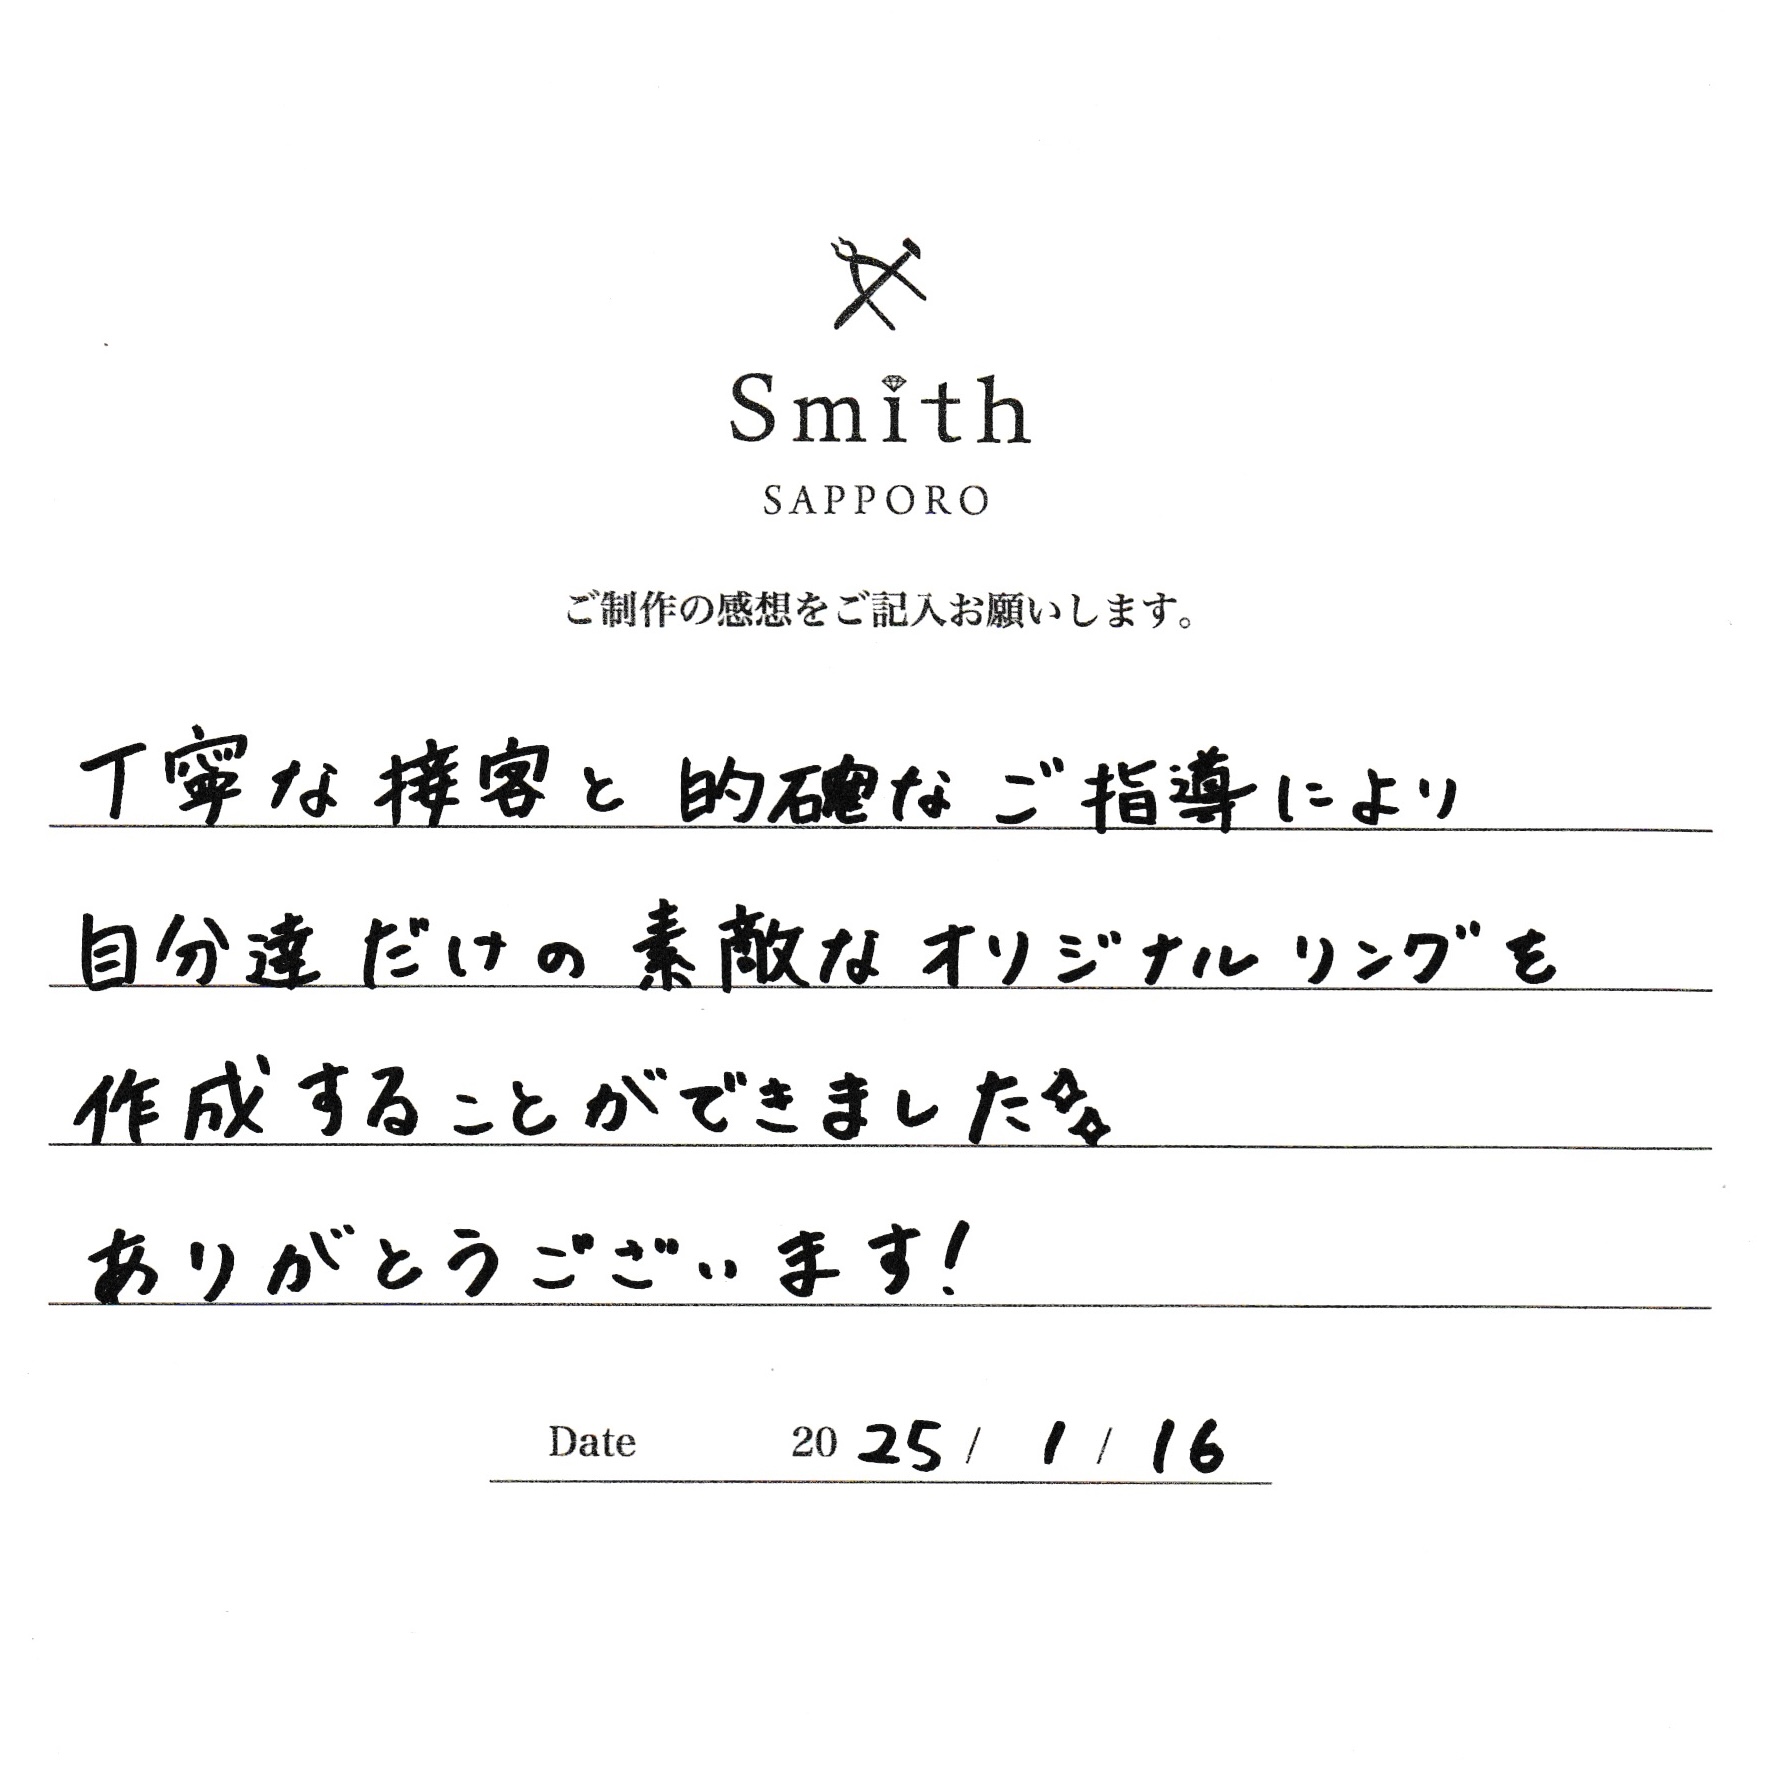 Smith
SAPPORO
ご制作の感想をご記入お願いします。
丁寧な接客と的確なご指導により
自分達だけの素敵なオリジナルリングを
作成することができました
ありがとうございます!
Date 2025/1/16